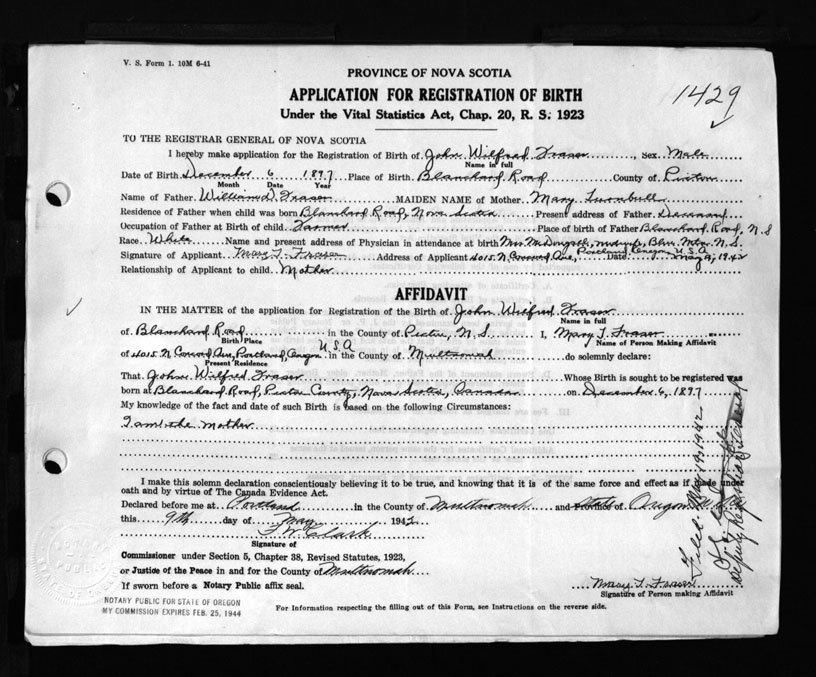 V. S. Form 1. 10M 6-41
PROVINCE OF NOVA SCOTIA
1429
APPLICATION FOR REGISTRATION OF BIRTH
Under the Vital Statistics Act, Chap. 20, R. S. 1923
TO THE REGISTRAR GENERAL OF NOVA SCOTIA
I hereby make application for the Registration of Birth of John Wilfred Fraser, Sex Male
Name in full
Date of Birth December 6 1897 Place of Birth Blanchard Road County of Pictou
Month Date Year
Name of Father William D. Fraser MAIDEN NAME of Mother Mary Turnbull
Residence of Father when child was born Blanchard Road, Nova Scotia Present address of Father Deceased
Occupation of Father at Birth of child Farmer Place of birth of Father Blanchard Road, N.S
Race White Name and present address of Physician in attendance at birth Mrs. McDougall, midwife, Blue Mtn. N.S.
Portland Oregon U.S.A
Signature of Applicant Mary T. Fraser Address of Applicant 4015 N. Concord Ave, Date May 9, 1942
Relationship of Applicant to child Mother
AFFIDAVIT
IN THE MATTER of the application for Registration of the Birth of John Wilfred Fraser
Name in full
of Blanchard Road in the County of Pictou, N.S. I, Mary T. Fraser
Birth Place Name of Person Making Affidavit
of 4015 N Concord Ave, Portland, Oregon U.S.A in the County of Multnomah do solemnly declare:
Present Residence
That John Wilfred Fraser Whose Birth is sought to be registered was
born at Blanchard Road, Pictou County, Nova Scotia, Canada on December 6, 1897
My knowledge of the fact and date of such Birth is based on the following Circumstances:
I am the mother
I make this solemn declaration conscientiously believing it to be true, and knowing that it is of the same force and effect as if made under
oath and by virtue of The Canada Evidence Act.
Declared before me at Portland in the County of Multnomah and Province of State of Oregon
this 9th day of May 1942
F.W. Clark
Signature of
Commissioner under Section 5, Chapter 38, Revised Statutes, 1923,
or Justice of the Peace in and for the County of Multnomah
If sworn before a Notary Public affix seal.
Mary T. Fraser
Signature of Person making Affidavit
NOTARY PUBLIC FOR STATE OF OREGON
MY COMMISSION EXPIRES FEB. 25, 1944
For Information respecting the filling out of this Form, see Instructions on the reverse side.
Filed May 19, 1942
Deputy Registrar General